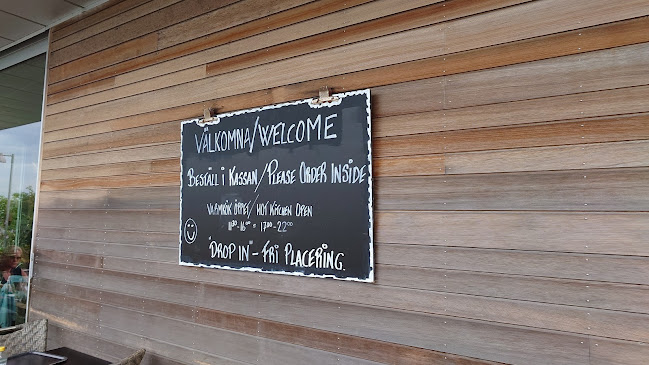 VÄLKOMNA/WELCOME
BESTÄLL I KASSAN/PLEASE ORDER INSIDE
VARMKÖK ÖPPET/HOT KITCHEN OPEN
11:30-16:00 - 17:00-22:00
"DROP IN" - FRI PLACERING.